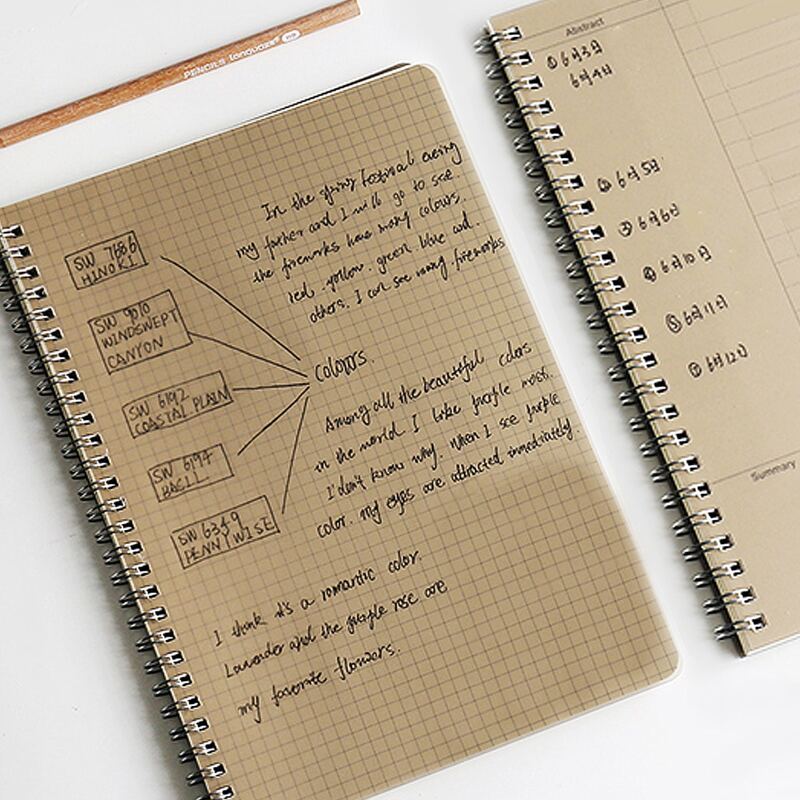 PENCILS
SW 7686
HINOKI
SW 9010
WINDSWEPT
CANYON
SW 6192
COASTAL PLAIN
SW 6194
BASIL.
SW 6349
PENNYWISE
In the spring festival evening
my father and I will go to see
the fireworks have many colours.
red. yellow. green blue and.
others. I can see many fireworks
colours.
Among all the beautiful colors
in the world I like purple most.
I don't know why. When I see purple
color. my eyes are attracted immediately.
I think it's a romantic color.
Lavender and the purple rose are
my favorite flowers.
Abstract
① 6月3日
6月4日
② 6月5日
③ 6月6日
④ 6月10日
⑤ 6月11日
⑦ 6月12日
Summary